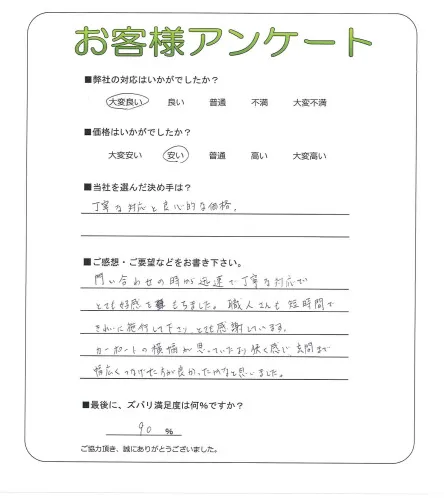 お客様アンケート
■弊社の対応はいかがでしたか？
大変良い 良い 普通 不満 大変不満
■価格はいかがでしたか？
大変安い 安い 普通 高い 大変高い
■当社を選んだ決め手は？
丁寧な対応と良心的な価格。
■ご感想・ご要望などをお書き下さい。
問い合わせの時から迅速で丁寧な対応で
とても好感をもちました。職人さんも短時間で
きれいに施行して下さりとても感謝しています。
カーポートの横幅が思っていたより狭く感じ玄関まで
幅広くつなげた方が良かったかなと思いました。
■最後に、ズバリ満足度は何%ですか？
90 %
ご協力頂き、誠にありがとうございました。